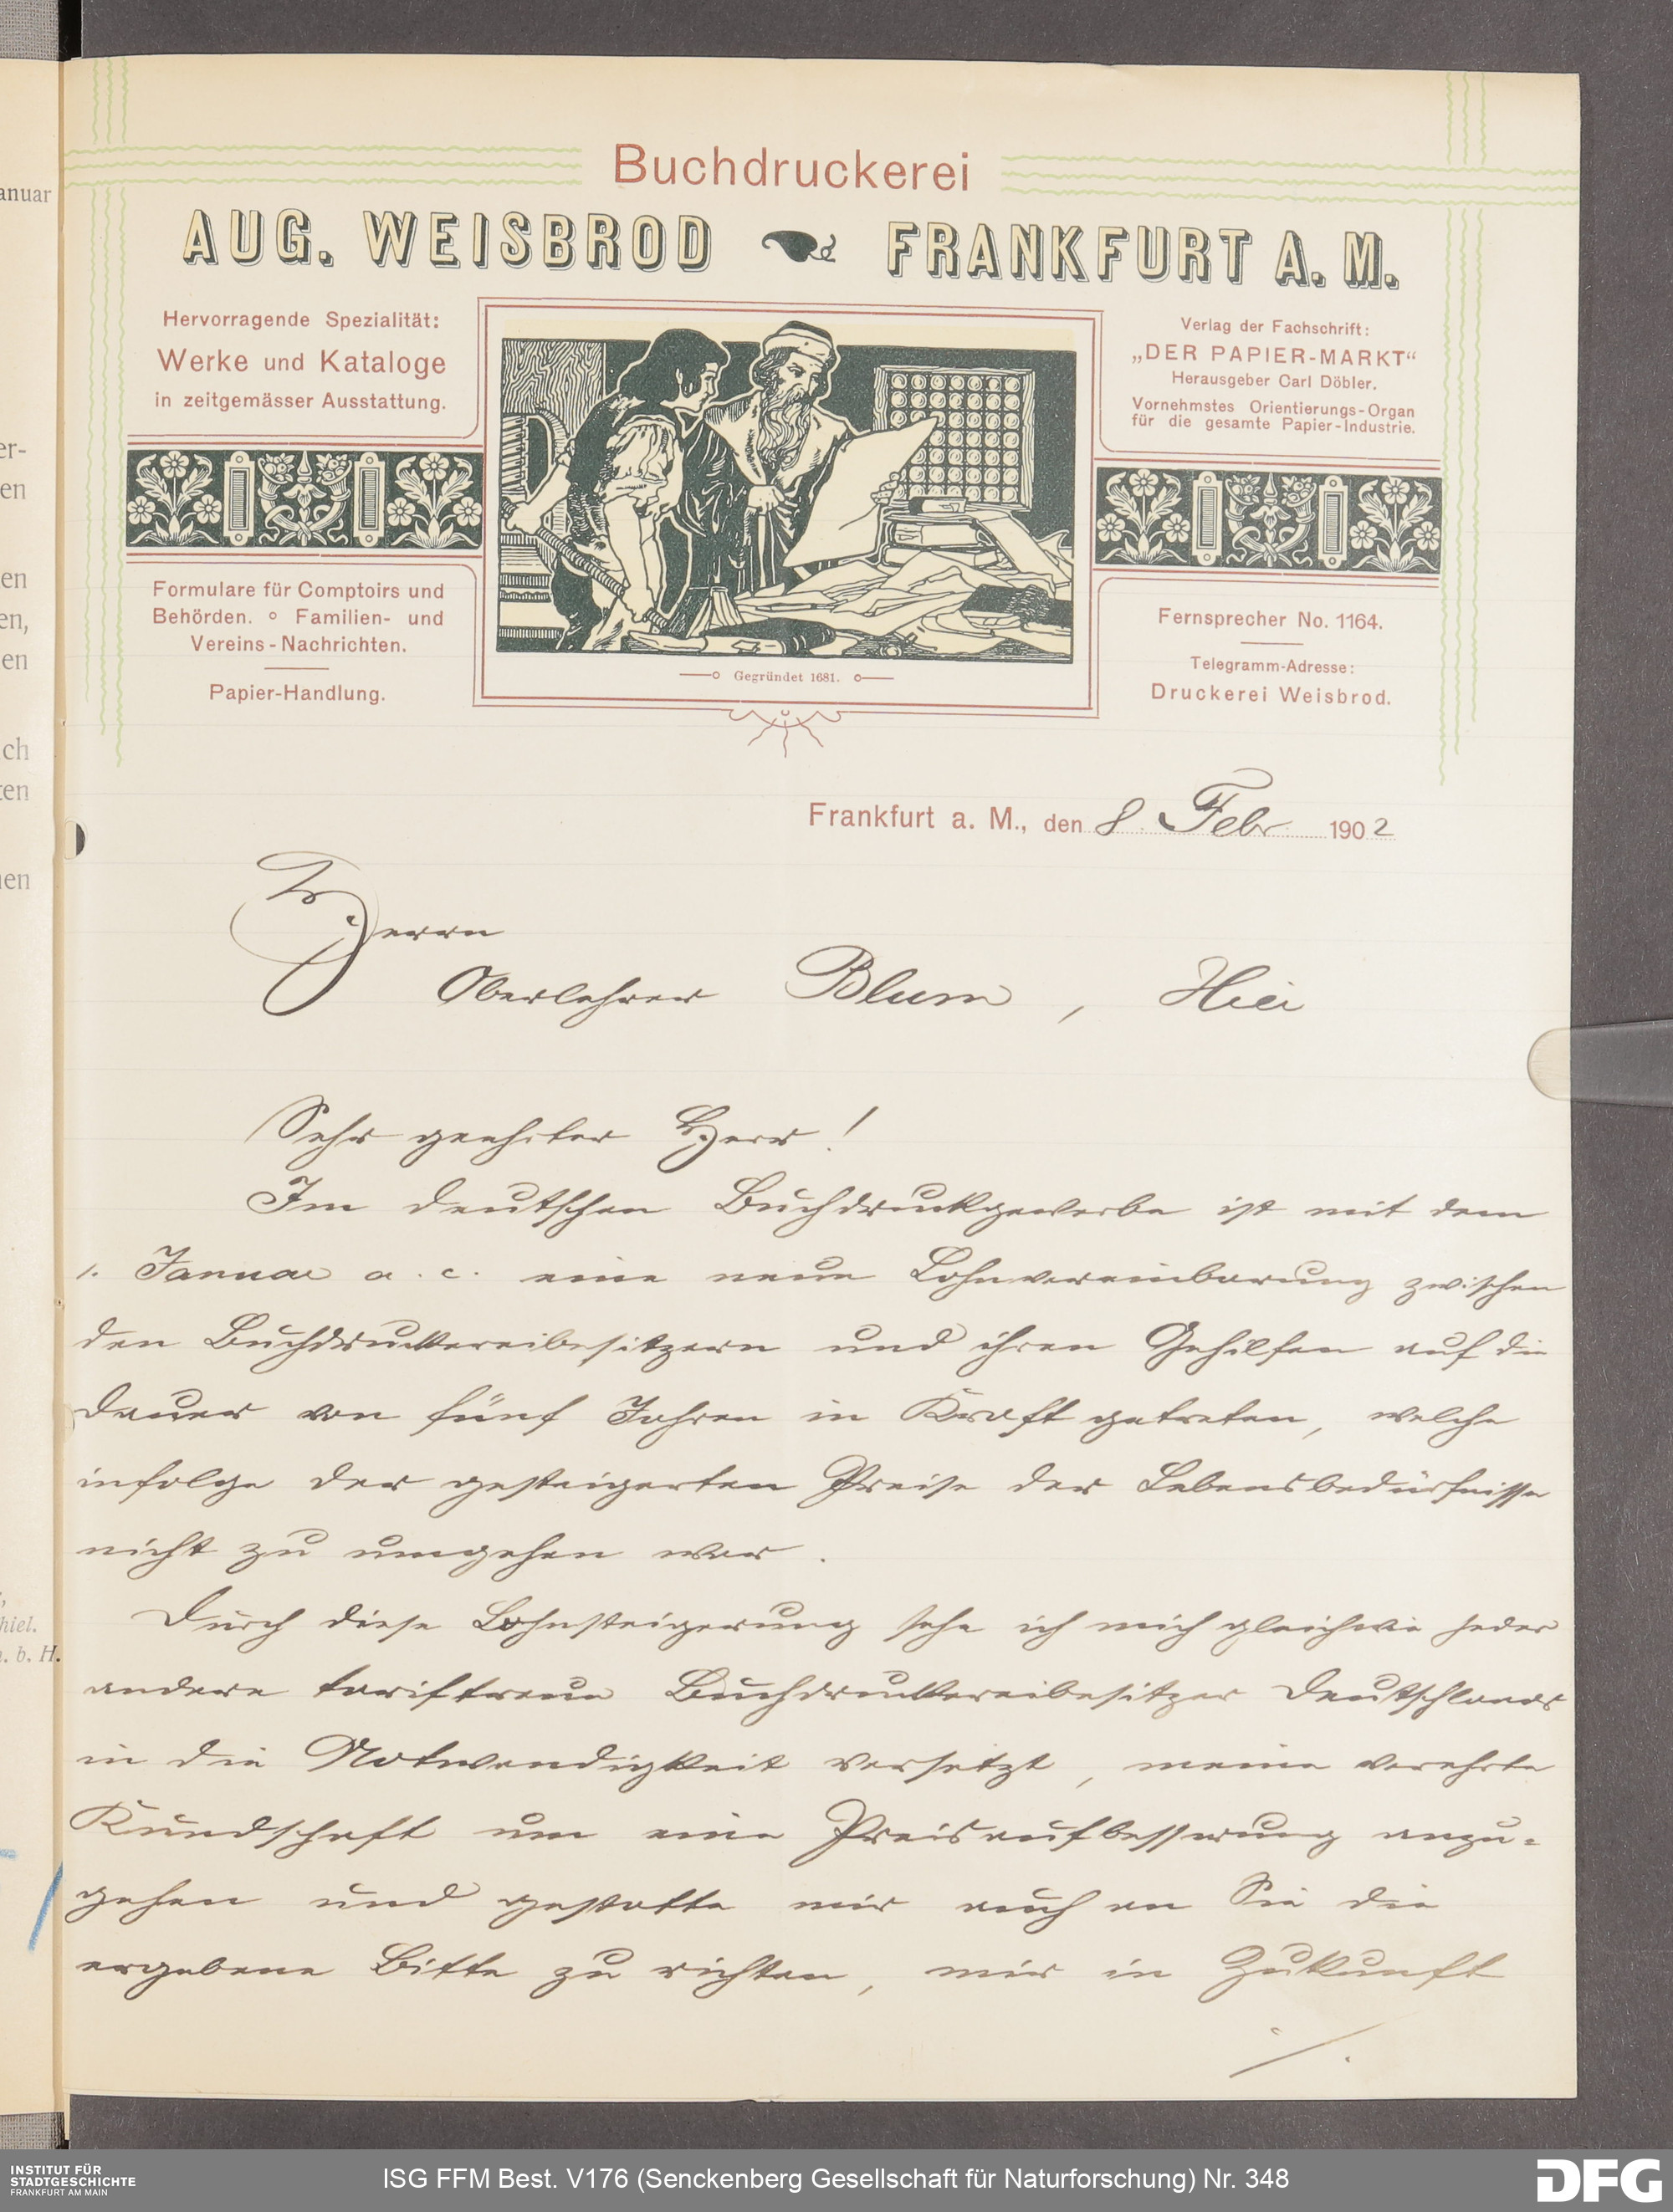 Buchdruckerei
AUG. WEISBROD FRANKFURT A. M.
Hervorragende Spezialität:
Werke und Kataloge
in zeitgemässer Ausstattung.
Formulare für Comptoirs und
Behörden. ○ Familien- und
Vereins-Nachrichten.
Papier-Handlung.
Gegründet 1681.
Verlag der Fachschrift:
„DER PAPIER-MARKT“
Herausgeber Carl Döbler.
Vornehmstes Orientierungs-Organ
für die gesamte Papier-Industrie.
Fernsprecher No. 1164.
Telegramm-Adresse:
Druckerei Weisbrod.
Frankfurt a. M., den 8. Febr. 1902
Herrn
Oberlehrer Blum, Hier
Sehr geehrter Herr!
Im deutschen Buchdruckgewerbe ist mit dem
1. Januar a. c. eine neue Lohnvereinbarung zwischen
den Buchdruckereibesitzern und ihren Gehilfen auf die
Dauer von fünf Jahren in Kraft getreten, welche
infolge der gesteigerten Preise der Lebensbedürfnisse
nicht zu umgehen war.
Durch diese Lohnsteigerung sehe ich mich gleichwie jeder
andere tariftreue Buchdruckereibesitzer Deutschlands
in die Notwendigkeit versetzt, meine verehrte
Kundschaft um eine Preisaufbesserung anzu-
gehen und gestatte mir auch an Sie die
ergebene Bitte zu richten, mir in Zukunft
./.
anuar
er-
en
en
en,
en
ch
ten
nen
hiel.
. b. H.
INSTITUT FÜR
STADTGESCHICHTE
FRANKFURT AM MAIN
ISG FFM Best. V176 (Senckenberg Gesellschaft für Naturforschung) Nr. 348
DFG